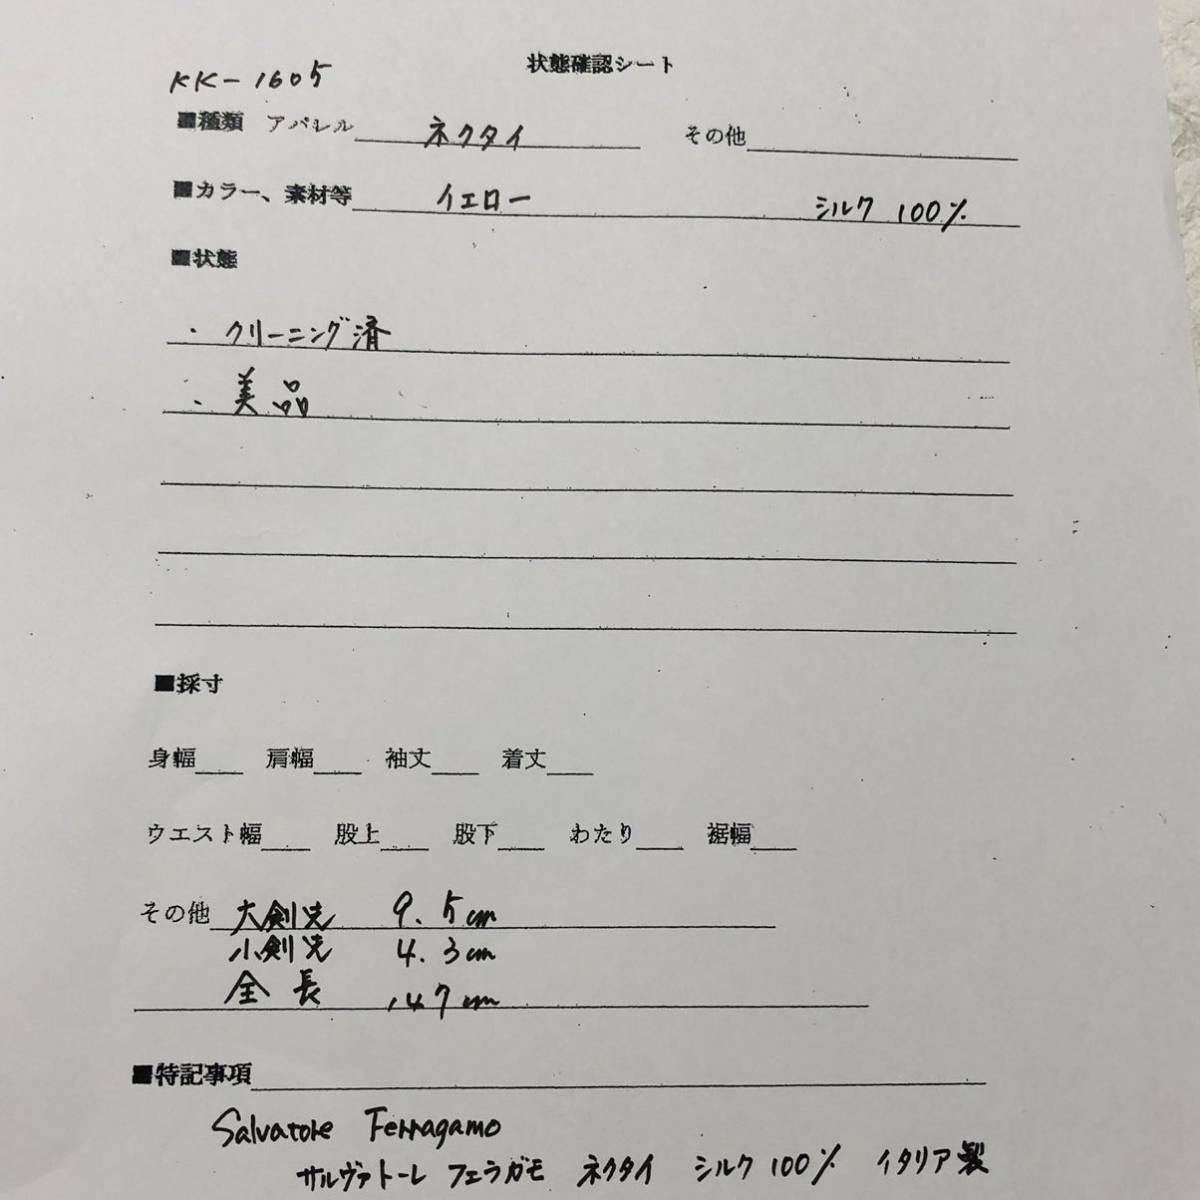 状態確認シート
KK-1605
■種類 アパレル ネクタイ その他
■カラー、素材等 イエロー シルク 100%
■状態
・クリーニング済
・美品
■採寸
身幅 肩幅 袖丈 着丈
ウエスト幅 股上 股下 わたり 裾幅
その他 大剣先 9.5cm
小剣先 4.3cm
全長 147cm
■特記事項
Salvatore Ferragamo
サルヴァトーレ フェラガモ ネクタイ シルク 100% イタリア製